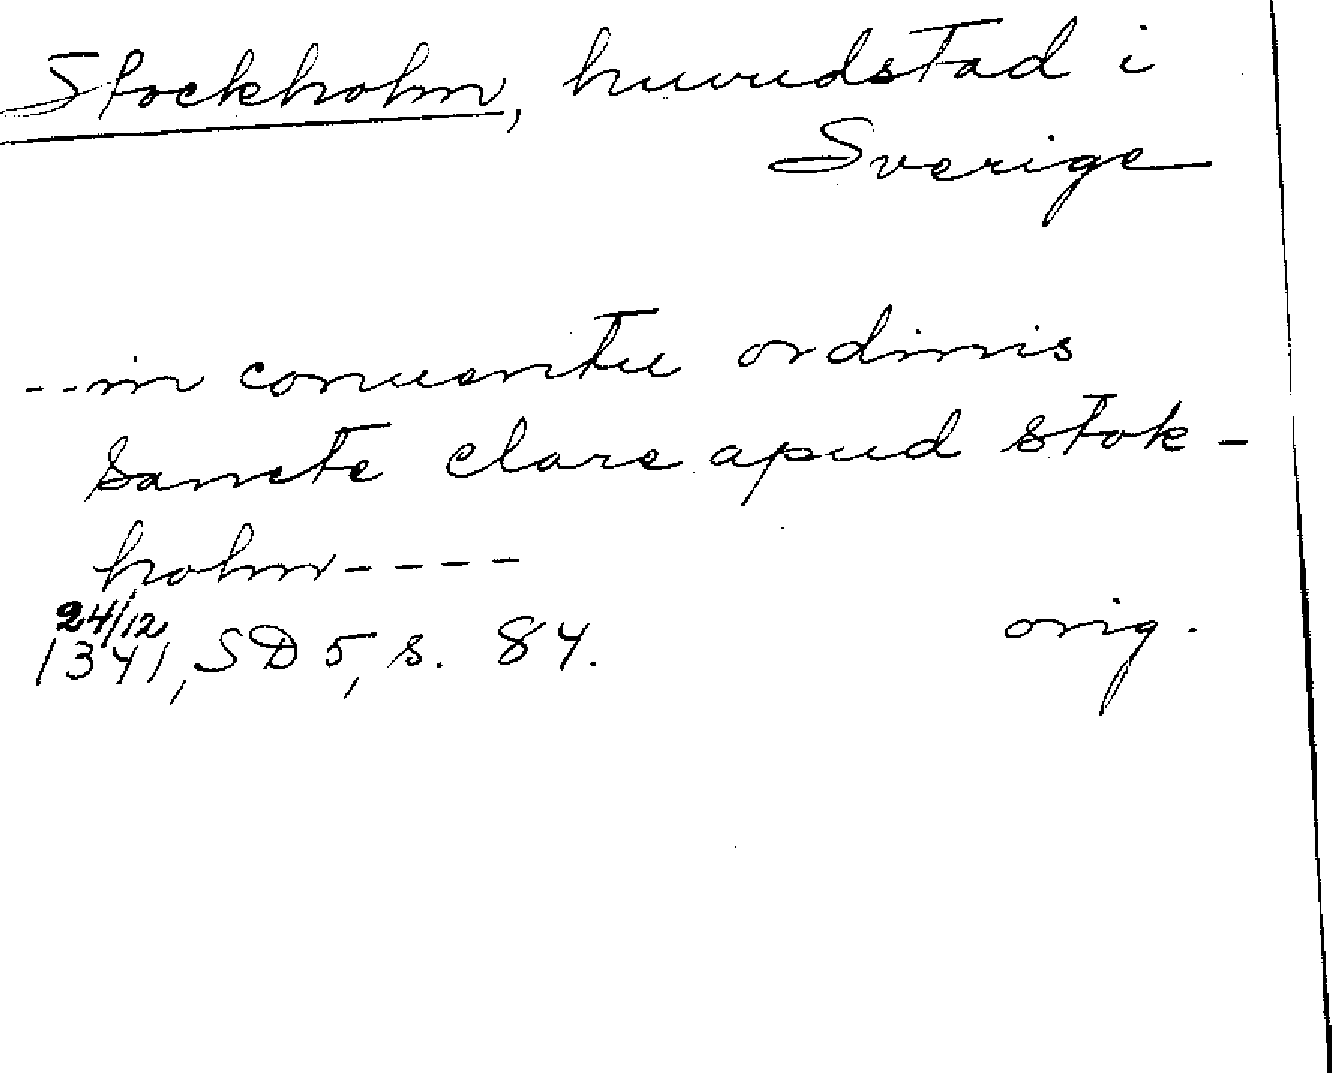 Stockholm, huvudstad i
Sverige
--in conuentu ordinis
sancte clare apud stok-
holm----
24/12
1341, SD 5, s. 84. orig.